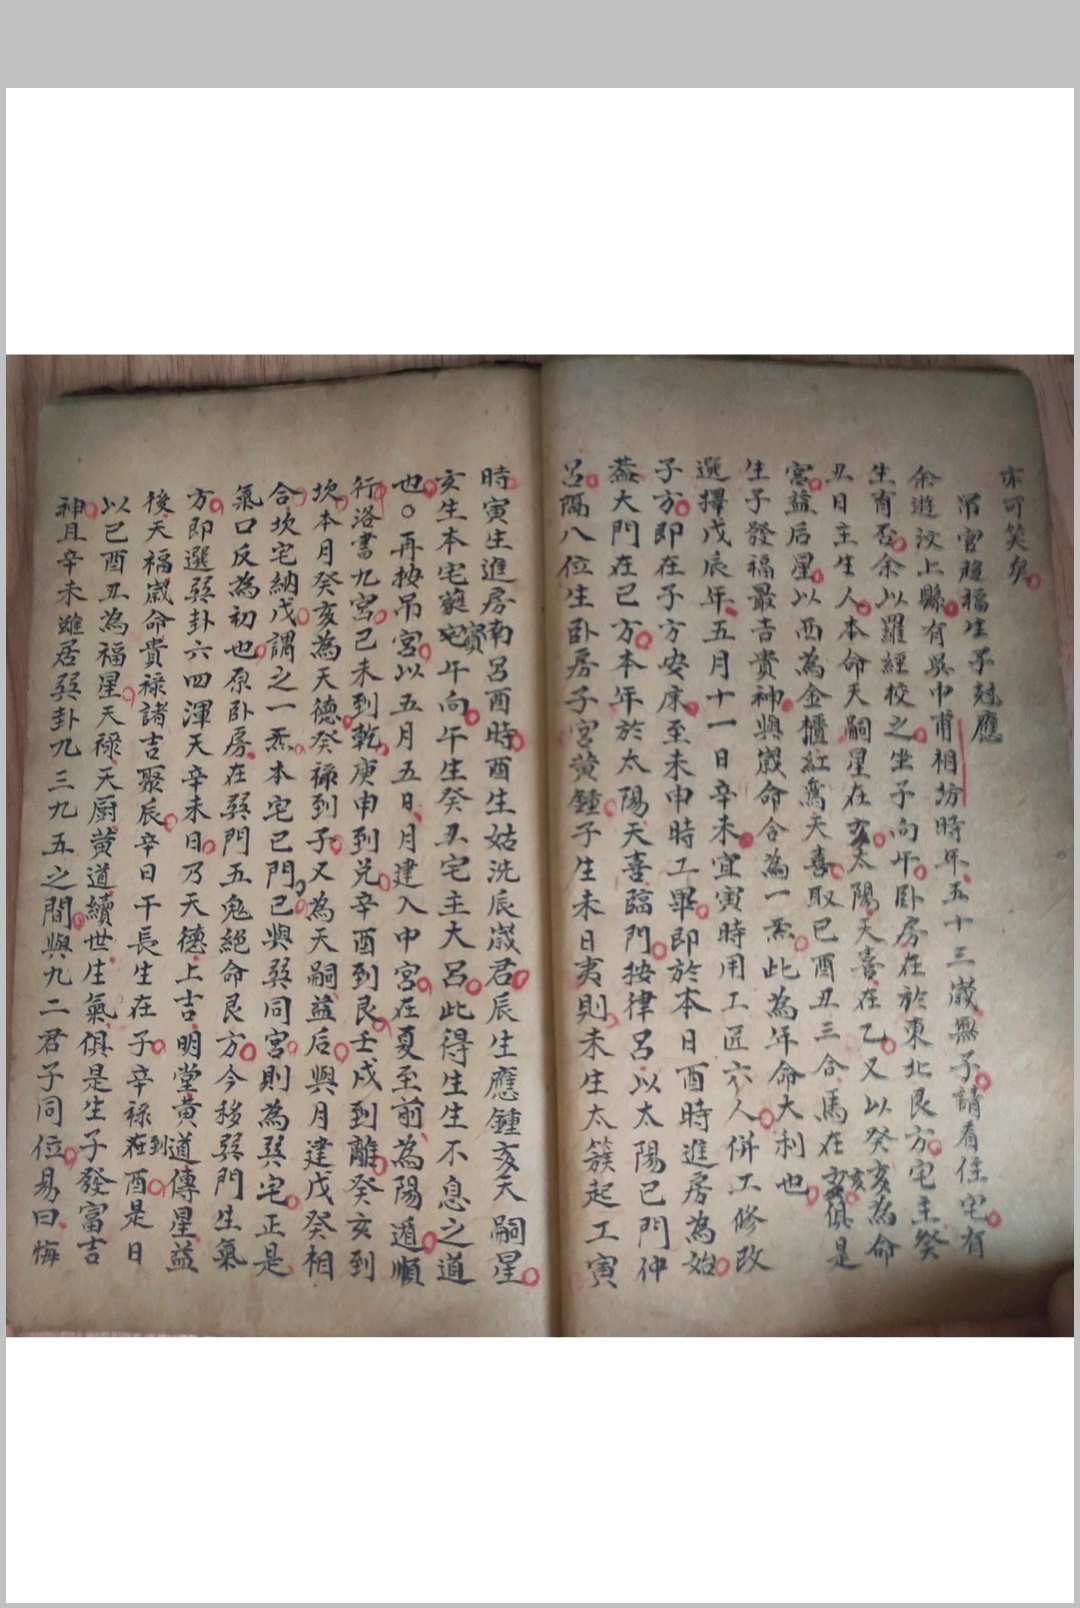 亦可笑矣
吊宮發福生子尅應
余遊汶上縣有吳中甫相訪時年五十三歲無子請看住宅有
生育否余以羅經校之坐子向午卧房在於東北艮方宅主癸
丑日主生人本命天嗣星在亥太陽天喜在乙又以癸亥為命
宮益后星以酉為金櫃紅鸞天喜取巳酉丑三合馬在亥俱是
生子發福最吉貴神與嵗命合為一炁此為年命大利也
選擇戊辰年五月十一日辛未宜寅時用工匠六人併工修改
子方即在子方安床至未申時工畢即於本日酉時進房為始
蓋大門在巳方本年於太陽天喜臨門按律呂以太陽巳門仲
呂隔八位生卧房子宮黃鍾子生未日夷則未生太簇起工寅
時寅生進房南呂酉時酉生姑洗辰嵗君辰生應鍾亥天嗣星
亥生本宅蕤賓午向午生癸丑宅主大呂此得生生不息之道
也○再按吊宮以五月五日月建入中宮在夏至前為陽遁順
行洛書九宮己未到乾庚申到兌辛酉到艮壬戌到離癸亥到
坎本月癸亥為天德癸祿到子又為天嗣益后與月建戊癸相
合坎宅納戊謂之一炁本宅巳門巳與巽同宮則為巽宅正是
氣口反為初也原卧房在巽門五鬼絕命艮方今移巽門生氣
方即選巽卦六四渾天辛未日乃天德上吉明堂黃道傳星益
後天福嵗命貴祿諸吉聚辰辛日干長生在子辛祿到酉是日
以巳酉丑為福星天祿天厨黃道續世生氣俱是生子發富吉
神且辛未雖居巽卦九三九五之間與九二君子同位易曰悔